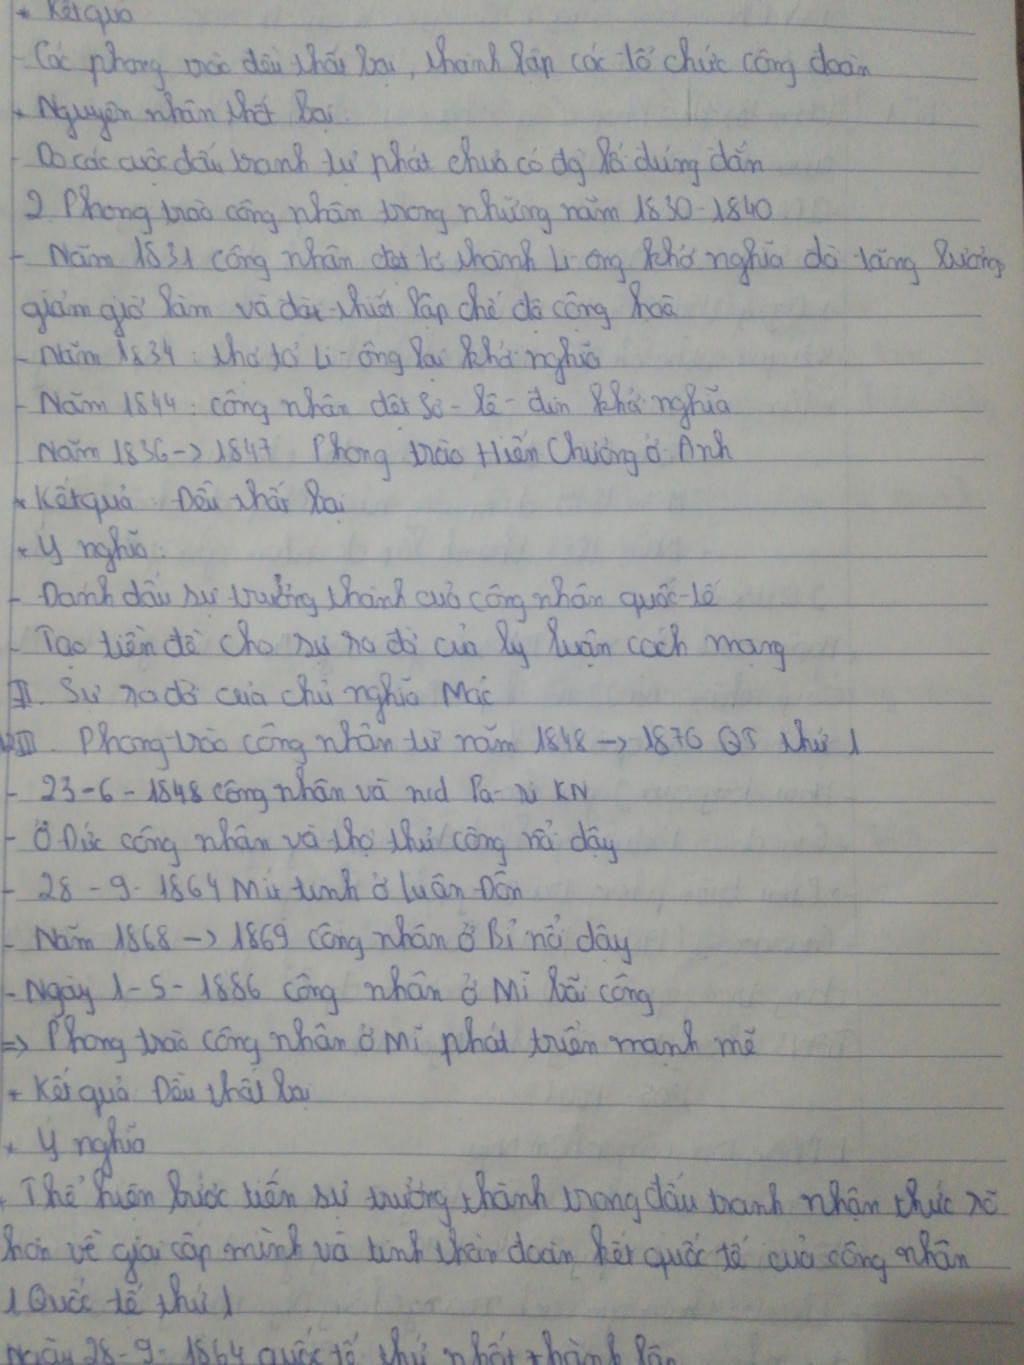 * Kết quả
- Các phong trào đều thất bại, thành lập các tổ chức công đoàn
* Nguyên nhân thất bại:
- Do các cuộc đấu tranh tự phát chưa có đg lối đúng đắn
2 Phong trào công nhân trong những năm 1830-1840
- Năm 1831 công nhân dệt tơ thành Li-ông khở nghĩa đò tăng lương,
giảm giờ làm và đòi thiết lập chế độ cộng hoà
- Năm 1834: thợ tơ Li-ông lại khở nghĩa
- Năm 1844: công nhân dệt Sơ-lê-din khở nghĩa
Năm 1836-> 1847 Phong trào Hiến Chương ở Anh
* Kết quả: Đều thất bại
* Ý nghĩa:
- Đánh dấu sự trưởng thành của công nhân quốc-tế
- Tạo tiền đề cho sự ra đờ của lý luận cách mạng
II. Sự ra đờ của chủ nghĩa Mác
III. Phong trào công nhân từ năm 1848 -> 1870 QT thứ 1
- 23-6-1848 công nhân và nd Pa-ri KN
- Ở Đức công nhân và thợ thủ công nổi dậy
- 28-9-1864 Mít tinh ở Luân Đôn
- Năm 1868 -> 1869 công nhân ở Bỉ nổi dậy
- Ngày 1-5-1886 công nhân ở Mĩ bãi công
=> Phong trào công nhân ở Mĩ phát triển mạnh mẽ
* Kết quả Đều thất bại
* Ý nghĩa
- Thể hiện bước tiến sự trưởng thành trong đấu tranh nhận thức rõ
hơn về giai cấp mình và tinh thần đoàn kết quốc tế của công nhân
1 Quốc tế thứ 1
Ngày 28-9-1864 quốc tế thứ nhất thành lập